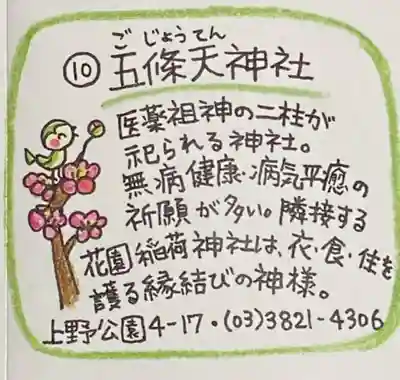 ごじょうてん
⑩ 五條天神社
医薬祖神の二柱が
祀られる神社。
無病健康・病気平癒の
祈願が多い。隣接する
花園稲荷神社は、衣・食・住を
護る縁結びの神様。
上野公園4-17・(03)3821-4306